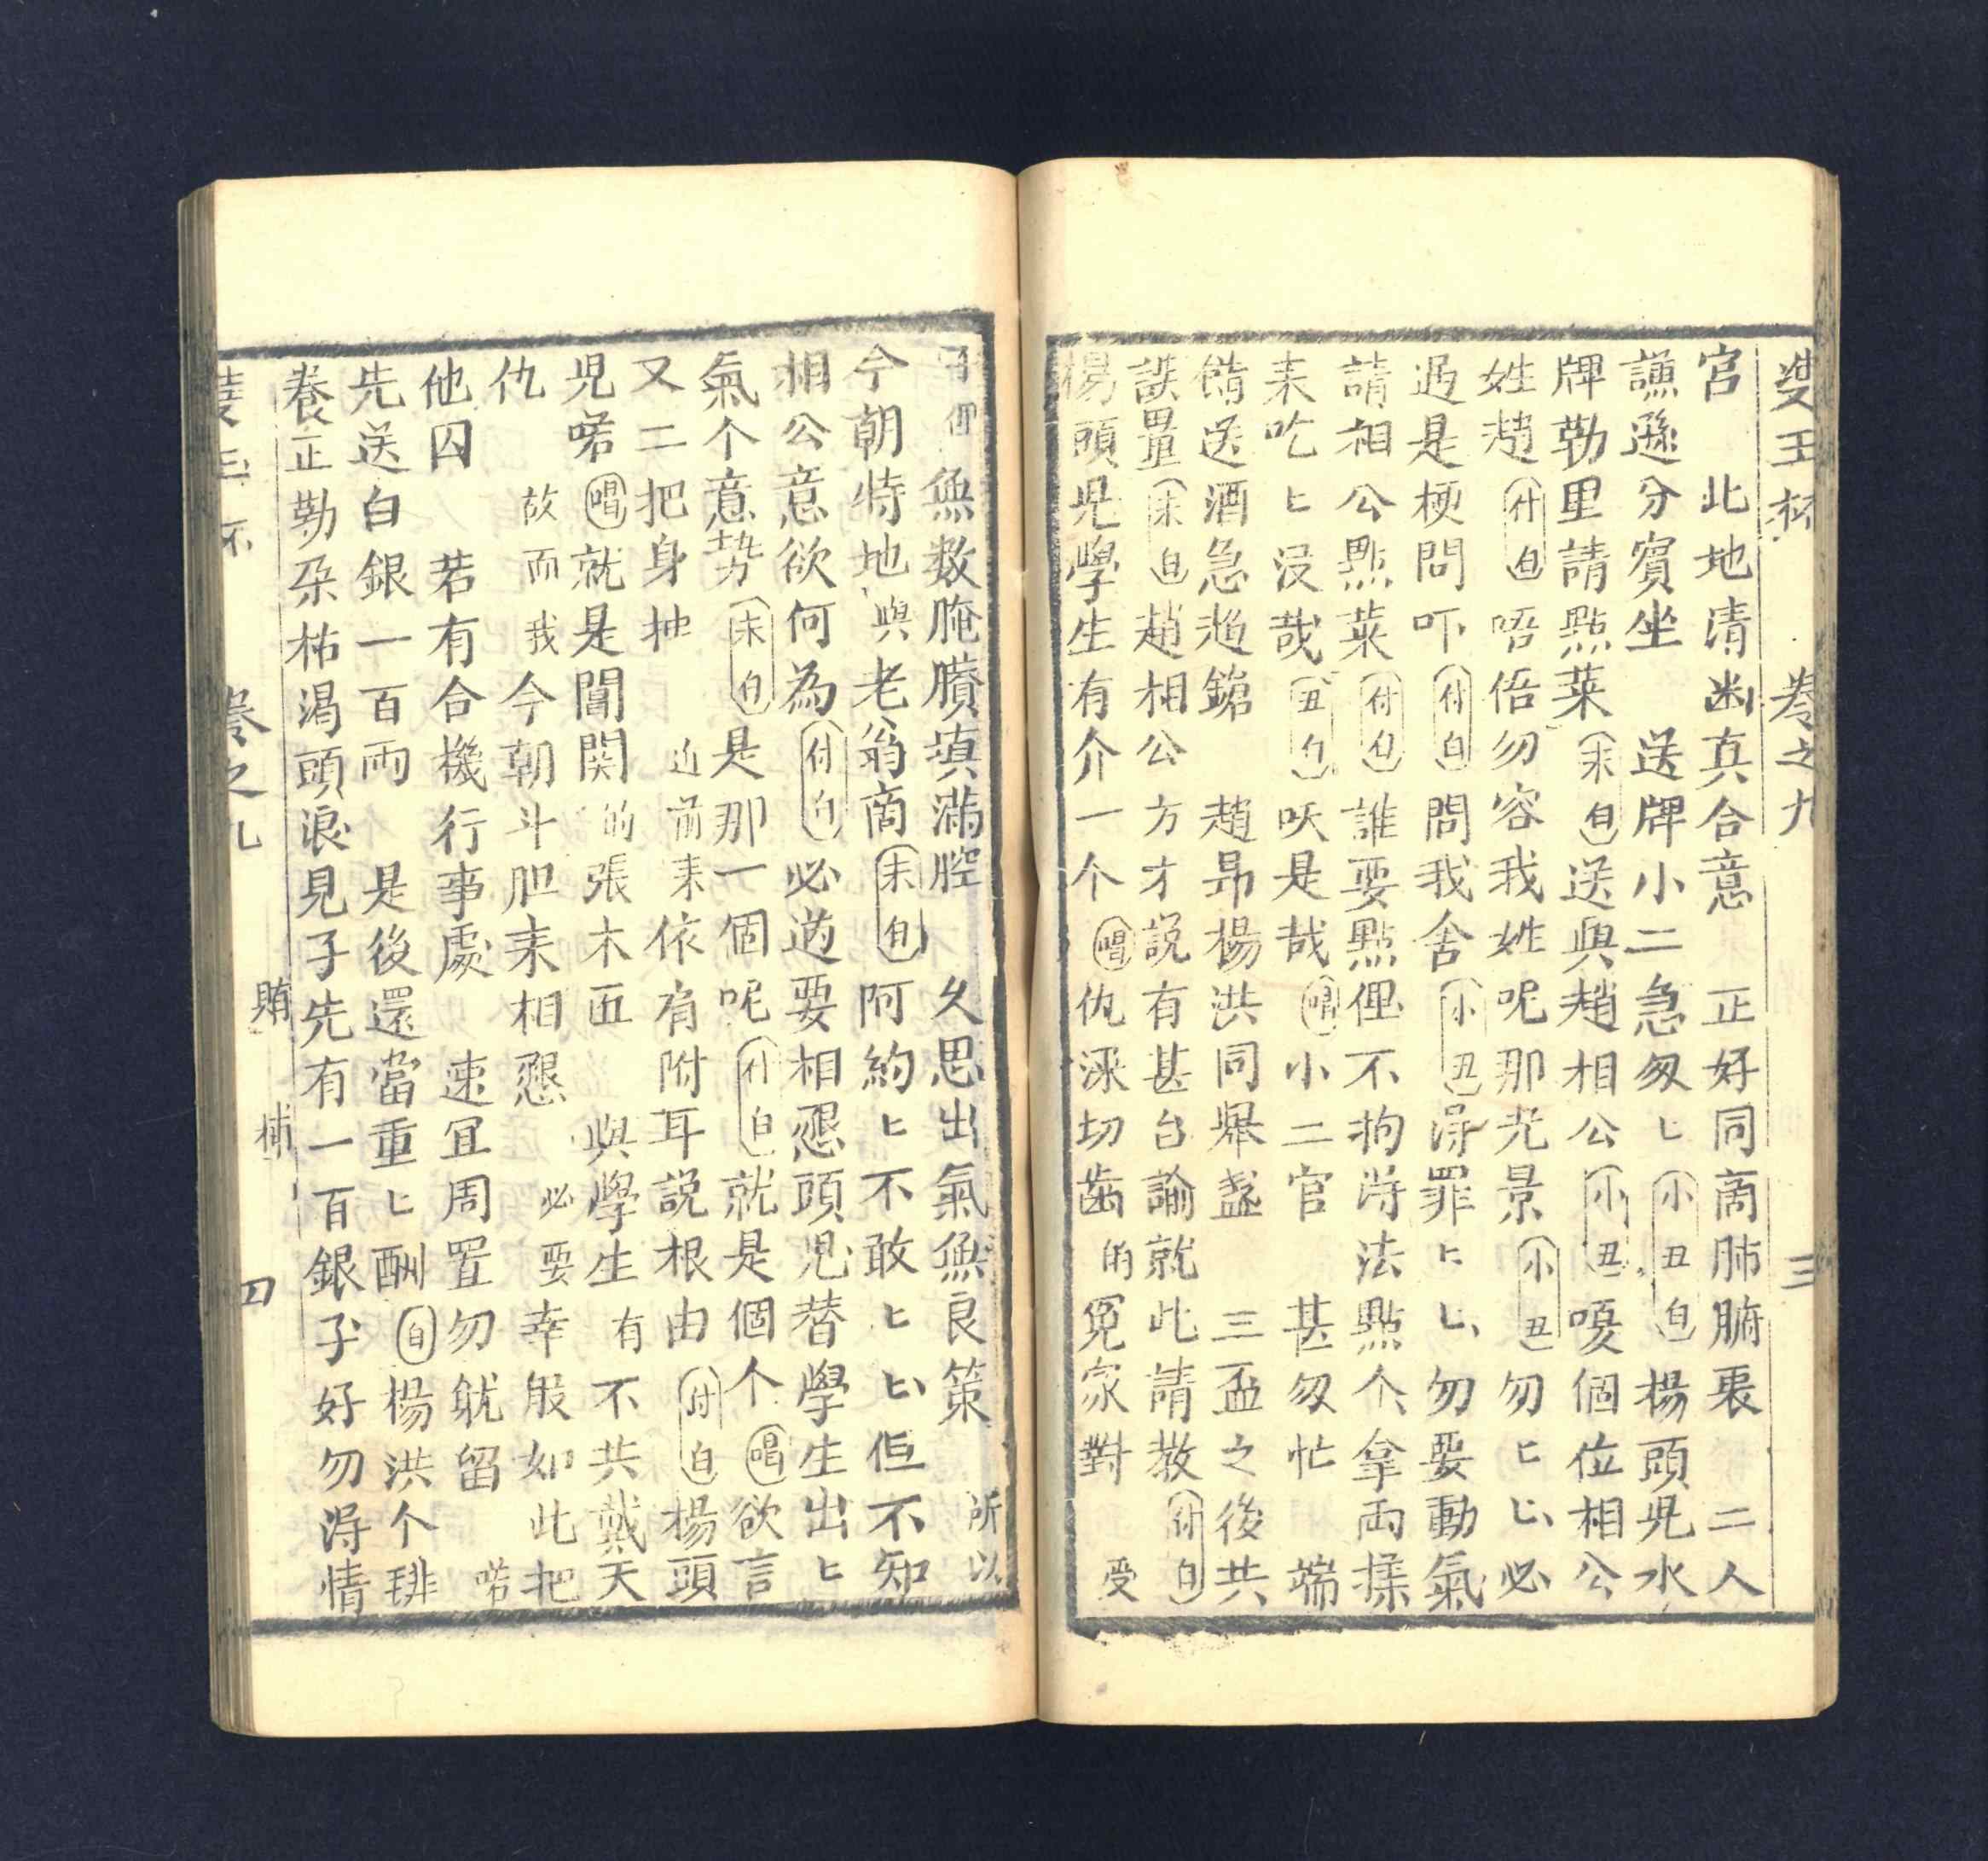 雙玉杯 卷之九 三
官 此地清幽真合意 正好同商肺腑裏 二人
謙遜分賓坐 送牌小二急匆匕 小丑白 楊頭児水
牌勒里請點菜 末白 送與趙相公 小丑 嗄個位相公
姓趙 付白 唔倍勿容我姓呢那光景 小丑 勿匕匕必
過是梗問吓 付白 問我舍 小丑 淂罪匕匕勿要動氣
請相公點菜 付白 誰要點俚不拘淂法點个拿両様
来吃匕没哉 丑白 呋是哉 唱 小二官 甚匆忙 端
餚送酒急趋鎗 趙昻楊洪同舉盞 三盃之後共
談量 末白 趙相公方才説有甚台諭就此請教 付白
楊頭児學生有介一个 唱 仇深切齒的冤家對 受
無数腌臢填滿腔 久思出氣無良策 所以
今朝特地與老翁商 末白 阿約匕不敢匕匕但不知
相公意欲何為 付白 必遒要相懇頭児替學生出匕
氣个意势 末白 是那一個呢 付白 就是個个 唱 欲言
又二把身抽 近前来依肩附耳説根由 付白 楊頭
児喏 唱 就是閶関的張木匠 與學生有不共戴天
仇 故而我今朝斗胆来相懇 必要幸般如此把
他囚 若有合機行事處 速宜周置勿躭留 喏
先送白銀一百両 是後還當重匕酬 白 楊洪个琲
養正勒朶枯渴頭浪見子先有一百銀子好勿淂情
雙玉杯 卷之九 賄捕 四